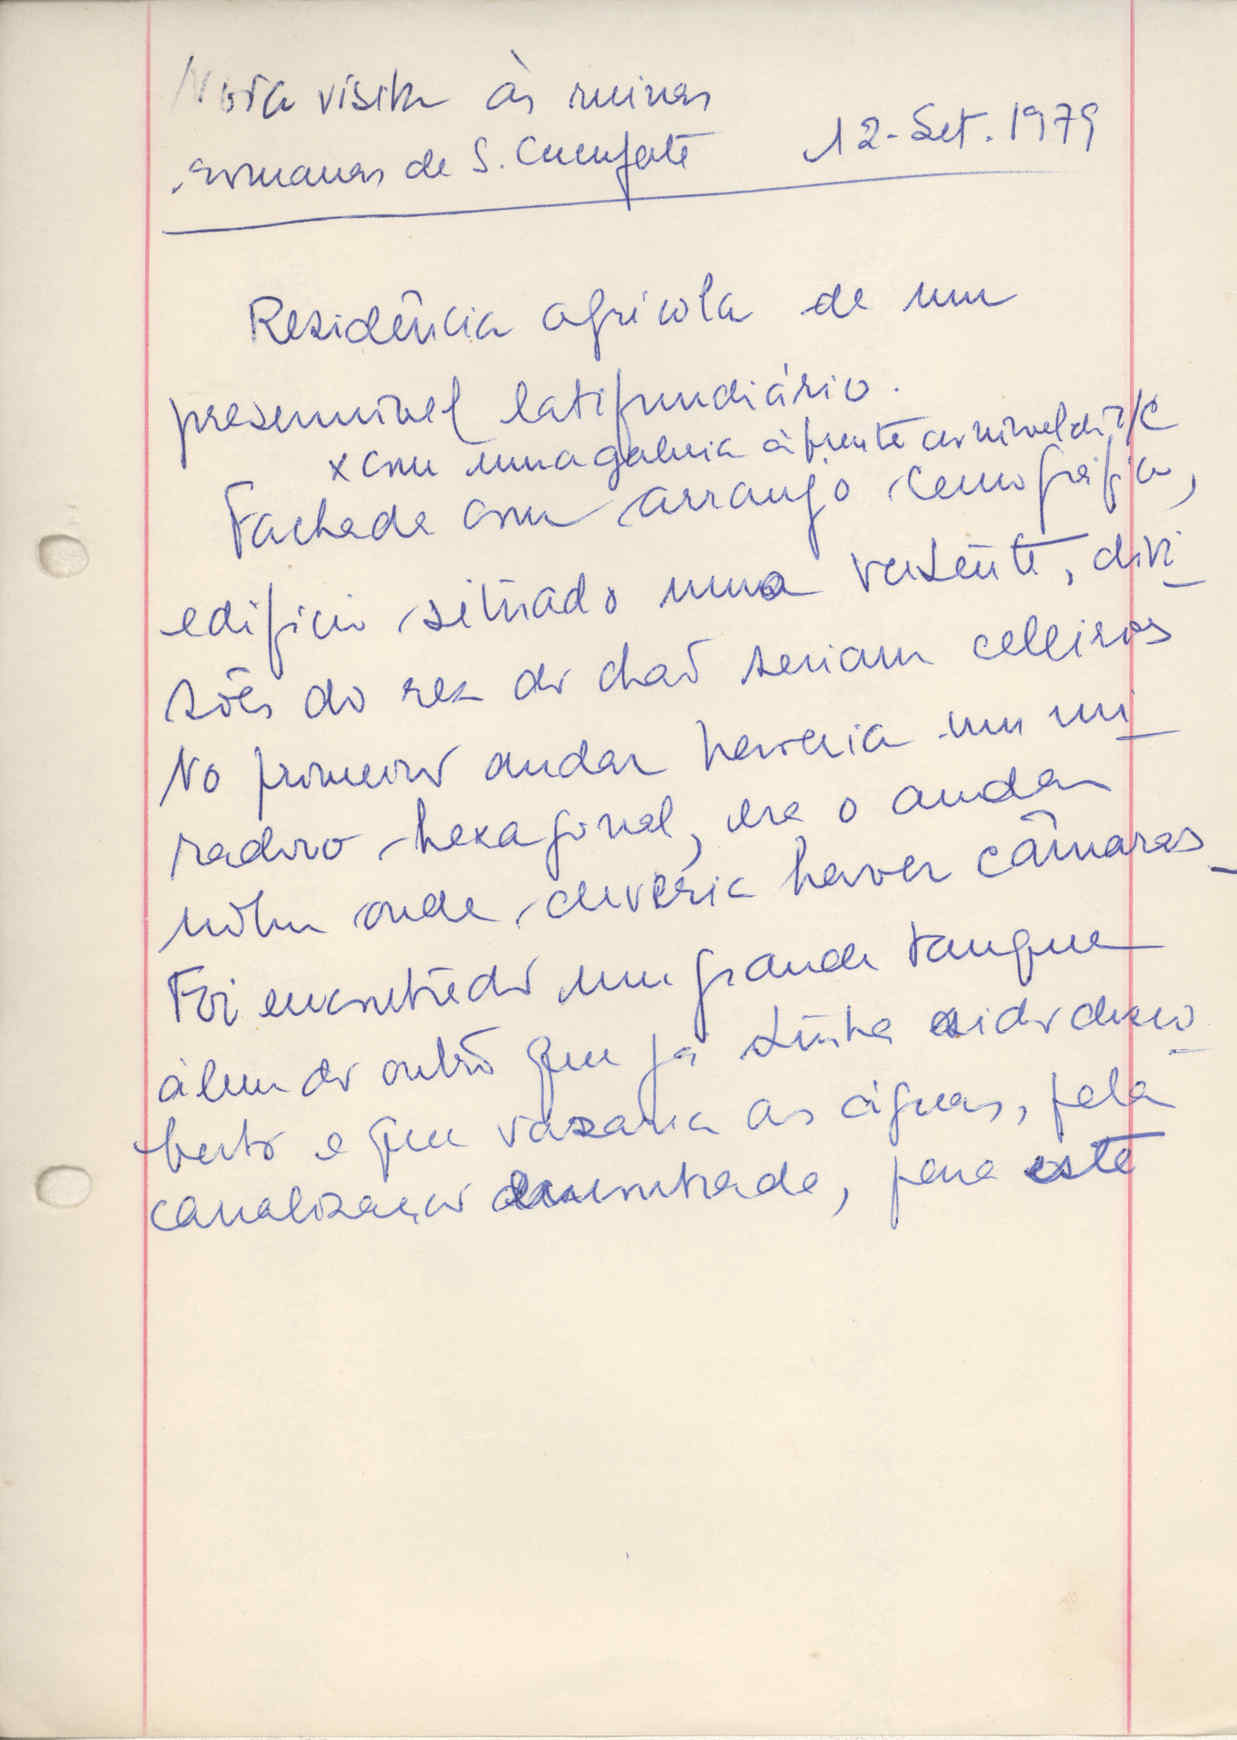 Nova visita às ruinas
romanas de S. Cucufate 12-Set. 1979
Residência agrícola de um
presumivel latifundiário.
x com uma galeria à frente ao nivel do r/c
Fachada com arranjo cenográfico,
edificio situado numa vertente, divi
sões do rez do chaõ seriam celleiros
No primeiro andar haveria um mi
radoiro hexagonal, era o andar
nobre onde deveria haver câmaras
Foi encontrado um grande tanque
àlem do outro que já tinha sido desco
berto e que vazaria as águas, pela
canalização encontrada, para este